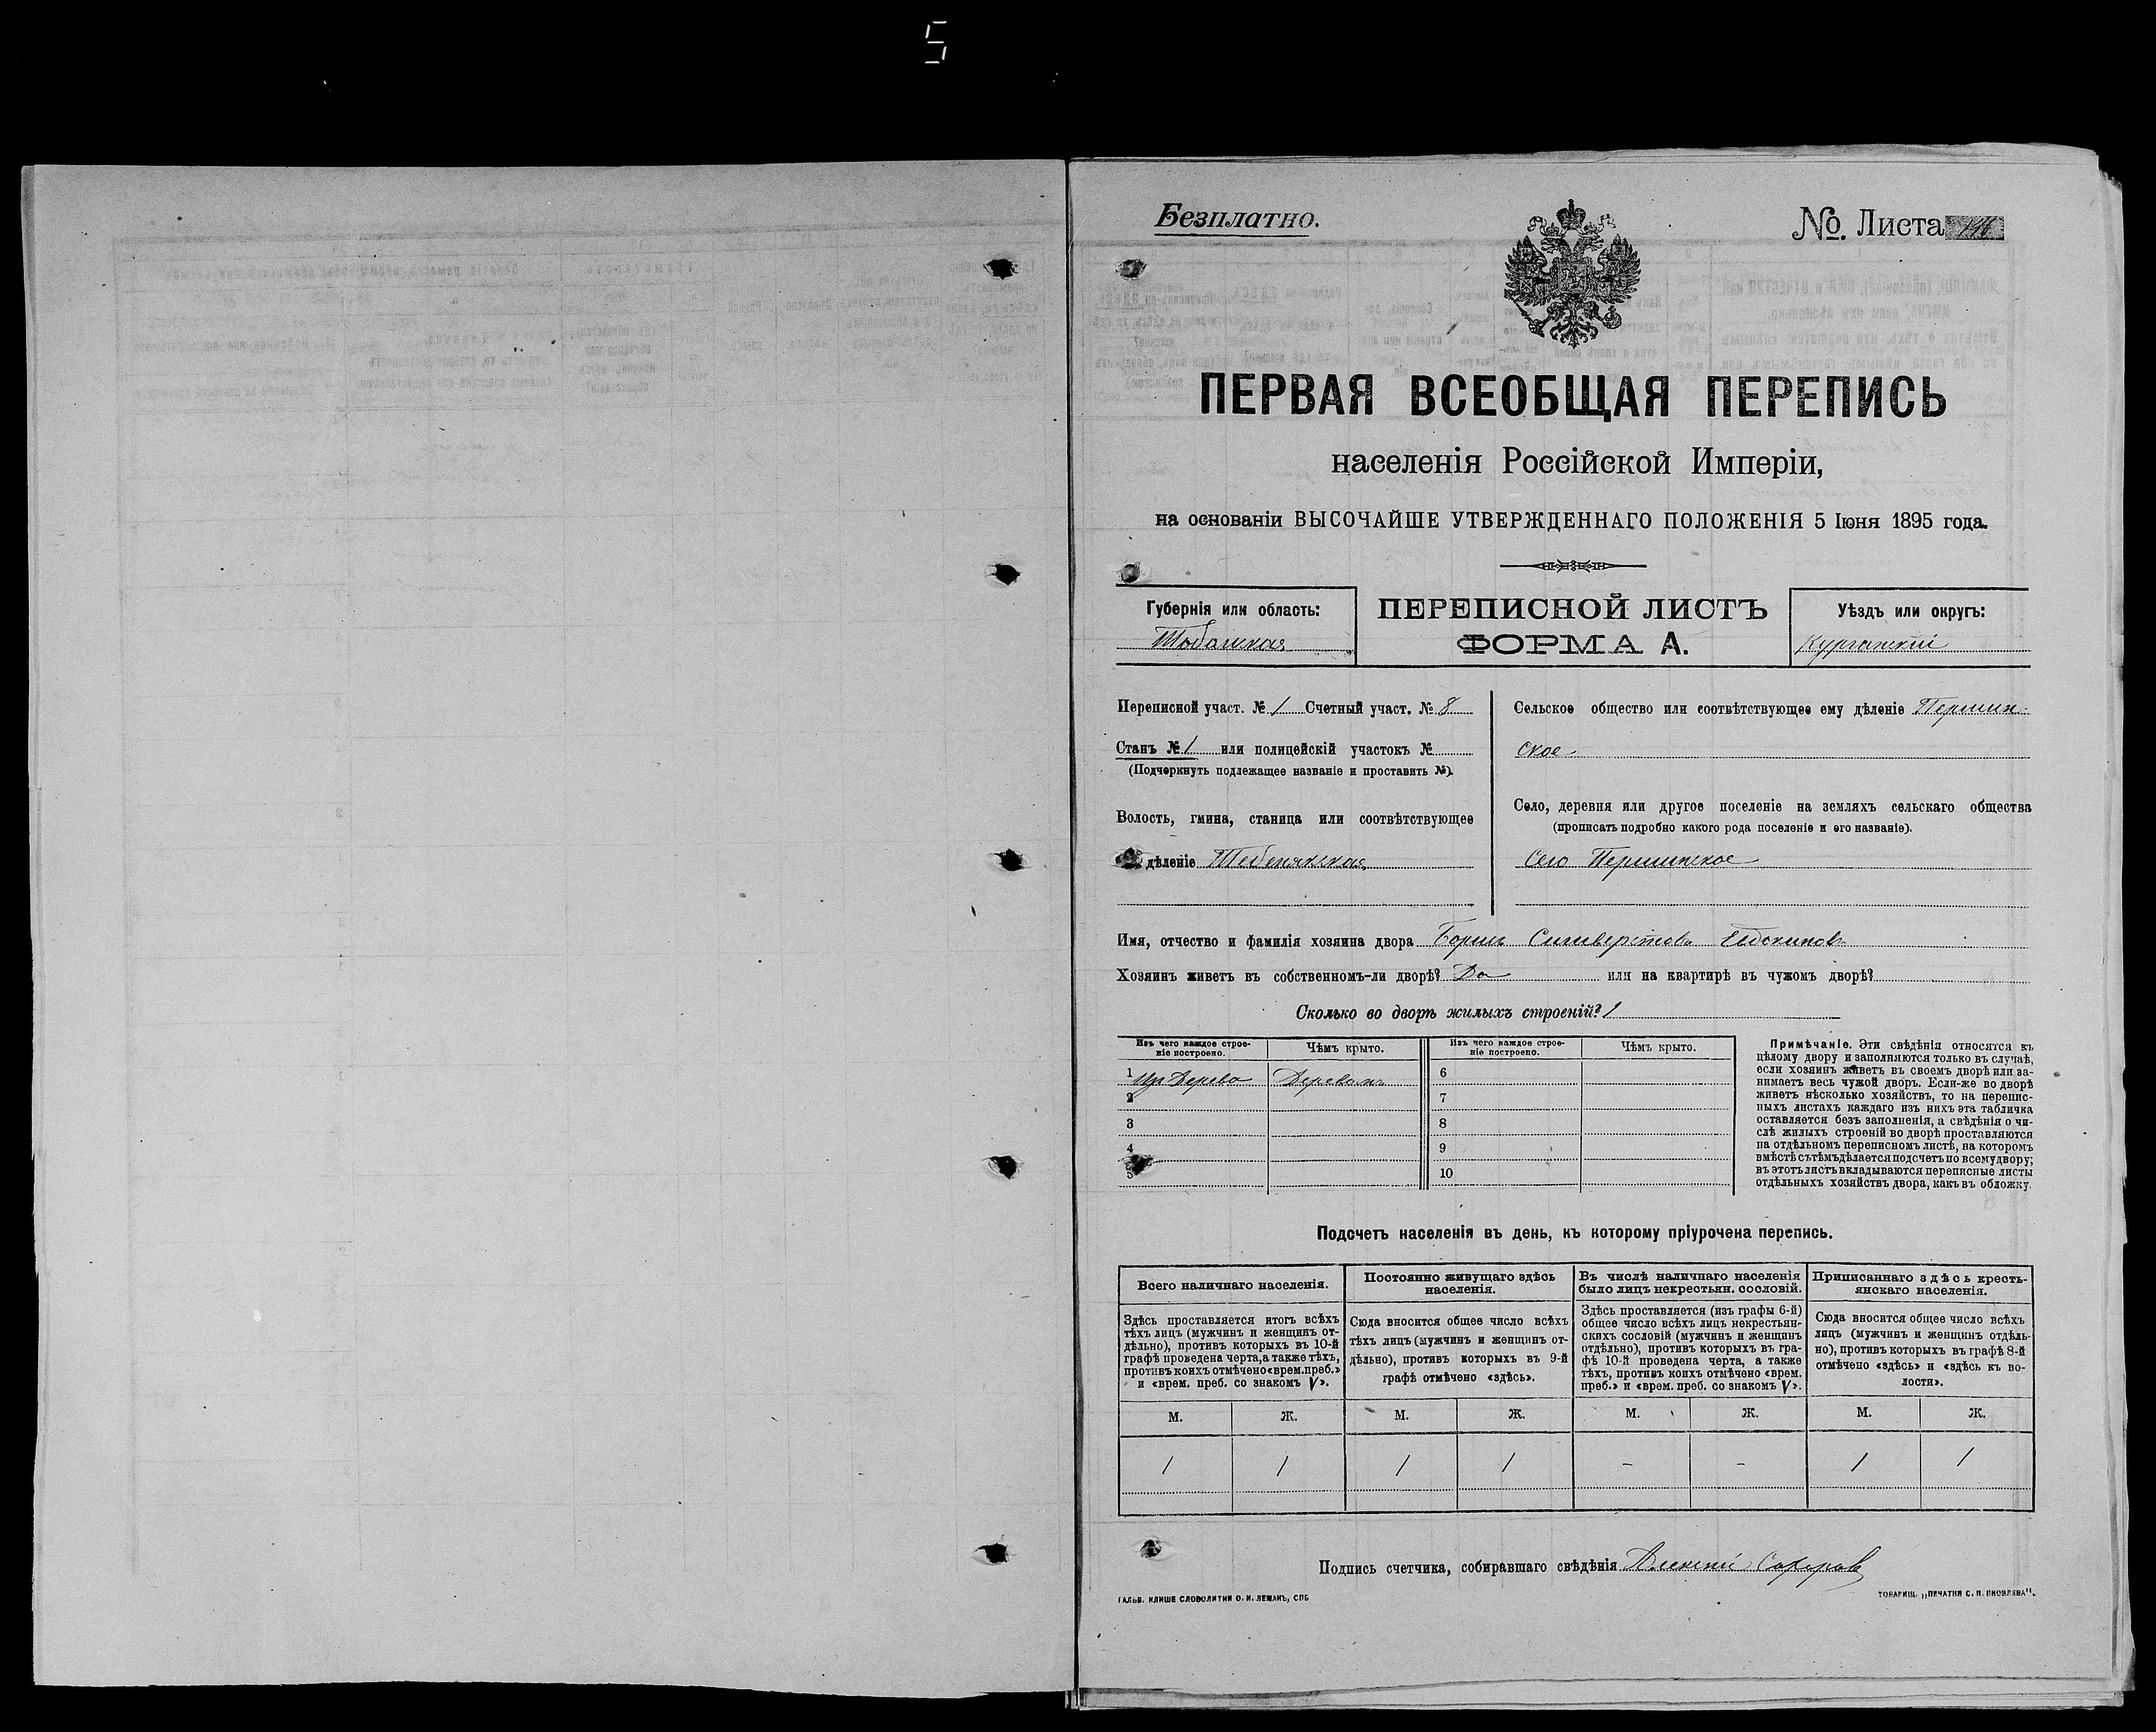 5
Безплатно.
№. Листа 146
ПЕРВАЯ ВСЕОБЩАЯ ПЕРЕПИСЬ
населенія Россійской Имперіи,
на основаніи ВЫСОЧАЙШЕ УТВЕРЖДЕННАГО ПОЛОЖЕНІЯ 5 Іюня 1895 года.
Губернія или область:
Тобольская
ПЕРЕПИСНОЙ ЛИСТЪ
ФОРМА А.
Уѣздъ или округъ:
Курганскій
Переписной участ. № 1 Счетный участ. № 8
Станъ № 1 или полицейскій участокъ №
(Подчеркнуть подлежащее названіе и проставить №).
Волость, гмина, станица или соотвѣтствующее
дѣленіе Тебенякская
Сельское общество или соотвѣтствующее ему дѣленіе Першин-
ское
Село, деревня или другое поселеніе на земляхъ сельскаго общества
(прописать подробно какого рода поселеніе и его названіе).
Село Першинское
Имя, отчество и фамилія хозяина двора Борисъ Сильверстовъ
Хозяинъ живетъ въ собственномъ-ли дворѣ? Да или на квартирѣ въ чужомъ дворѣ?
Сколько во дворѣ жилыхъ строеній? 1
Изъ чего каждое строе-
ніе построено.
Чѣмъ крыто.
Изъ чего каждое строе-
ніе построено.
Чѣмъ крыто.
1 Изъ Дерева Деревомъ 6
2 7
3 8
4 9
5 10
Примѣчаніе. Эти свѣдѣнія относятся къ
цѣлому двору и заполняются только въ случаѣ,
если хозяинъ живетъ въ своемъ дворѣ или за-
нимаетъ весь чужой дворъ. Если-же во дворѣ
живетъ нѣсколько хозяйствъ, то на перепис-
ныхъ листахъ каждаго изъ нихъ эта табличка
оставляется безъ заполненія, а свѣдѣнія о чи-
слѣ жилыхъ строеній во дворѣ проставляются
на отдѣльномъ переписномъ листѣ, на которомъ
вмѣстѣ съ тѣмъ дѣлается подсчетъ по всему двору;
въ этотъ листъ вкладываются переписные листы
отдѣльныхъ хозяйствъ двора, какъ въ обложку.
Подсчетъ населенія въ день, къ которому пріурочена перепись.
Всего наличнаго населенія.
Здѣсь проставляется итогъ всѣхъ
тѣхъ лицъ (мужчинъ и женщинъ от-
дѣльно), противъ которыхъ въ 10-й
графѣ проведена черта, а также тѣхъ,
противъ коихъ отмѣчено «врем. преб.»
и «врем. преб. со знакомъ V».
Постоянно живущаго здѣсь
населенія.
Сюда вносится общее число всѣхъ
тѣхъ лицъ (мужчинъ и женщинъ от-
дѣльно), противъ которыхъ въ 9-й
графѣ отмѣчено «здѣсь».
Въ числѣ наличнаго населенія
было лицъ некрестьян. сословій.
Здѣсь проставляется (изъ графы 6-й)
общее число всѣхъ лицъ некрестьян-
скихъ сословій (мужчинъ и женщинъ
отдѣльно), противъ которыхъ въ гра-
фѣ 10-й проведена черта, а также
тѣхъ, противъ коихъ отмѣчено «врем.
преб.» и «врем. преб. со знакомъ V».
Приписаннаго здѣсь кресть-
янскаго населенія.
Сюда вносится общее число всѣхъ
лицъ (мужчинъ и женщинъ отдѣль-
но), противъ которыхъ въ графѣ 8-й
отмѣчено «здѣсь» и «здѣсь къ во-
лости».
М. Ж. М. Ж. М. Ж. М. Ж.
1 1 1 1 - - 1 1
Подпись счетчика, собиравшаго свѣдѣнія Алексѣй
ГАЛЬВ. КЛИШЕ СЛОВОЛИТНИ О. И. ЛЕМАНЪ, СПБ
ТОВАРИЩ. „ПЕЧАТНЯ С. П. ЯКОВЛЕВА".